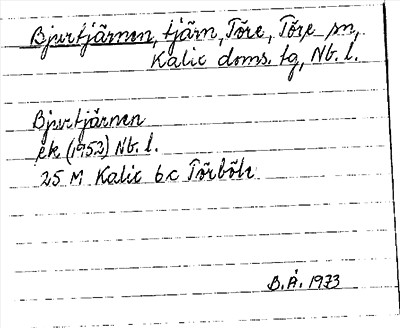 Bjurtjärnen, tjärn, Töre, Töre sn,
Kalix doms. tg, Nb. l.
Bjurtjärnen
ek (1952) Nb. l.
25 M Kalix 6c Törböle
B.Å. 1973